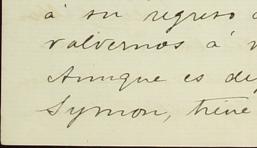 á su regreso
valvernos á
Aunque es de
Symon, tiene